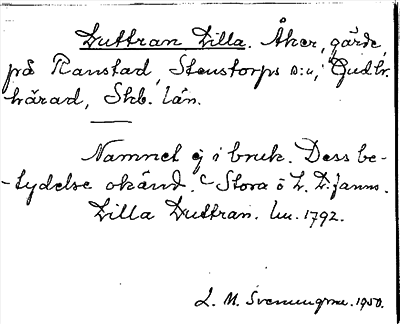 Duttran Lilla. Åker, gärde,
på Ranstad, Stenstorps s:n, Gudh.
härad, Skb. län.
Namnet ej i bruk. Dess be-
-tydelse okänd. Stora o L.
Lilla Duttran. lm. 1792.
L. M. Svenungsson. 1950.